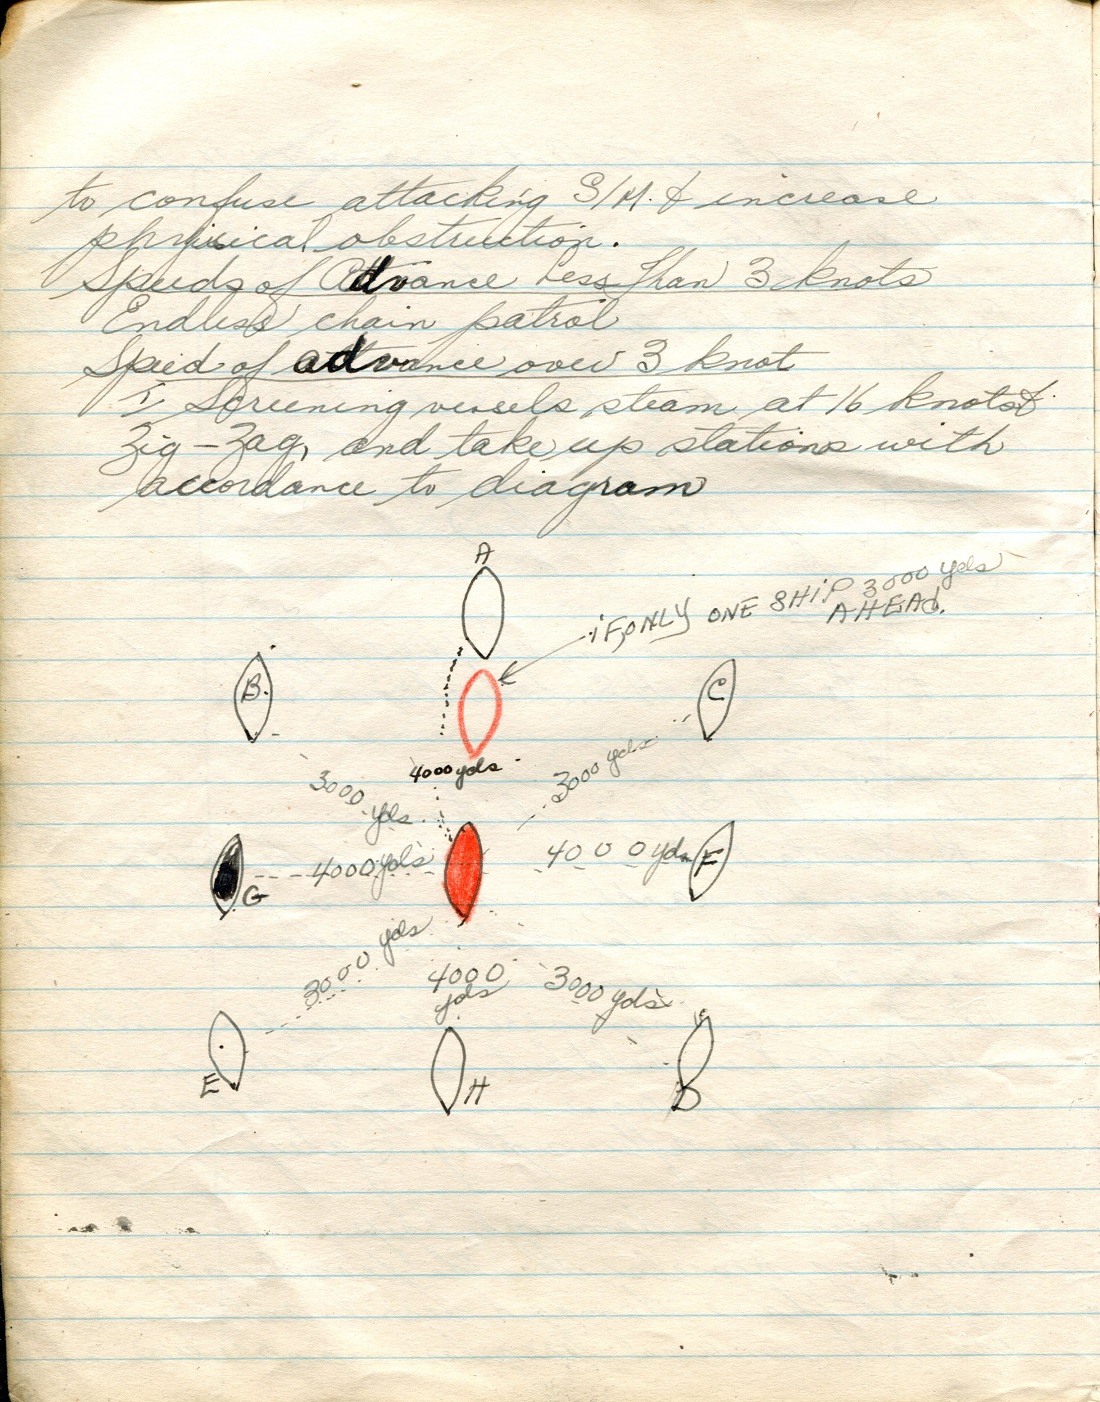 to confuse attacking S/M. & increase
physical obstruction.
Speeds of Advance Less Than 3 knots
Endless chain patrol
Speed of advance over 3 knot
I Screening vessels steam at 16 knots &
Zig-Zag, and take up stations with
accordance to diagram
A
if ONLY ONE SHIP 3000 yds
AHEAd.
B.
C
4000 yds
3000
yds
3000 yds
G
4000 yds
4000 yds
F
3000 yds
4000
yds
3000 yds
E
H
D